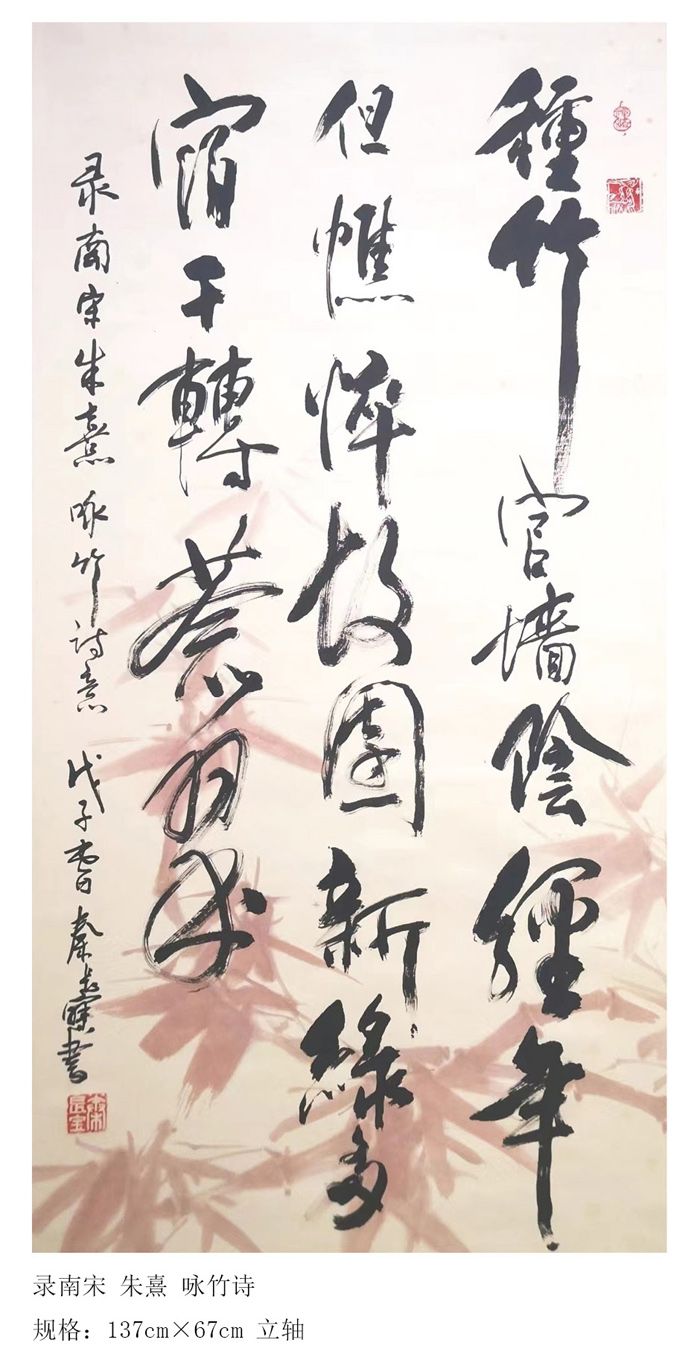 種竹官墙陰經年
但憔悴故園新綠多
宿干轉蒼翠
录南宋朱熹咏竹诗意 戊子春秦書
录南宋 朱熹 咏竹诗
规格：137cm×67cm 立轴